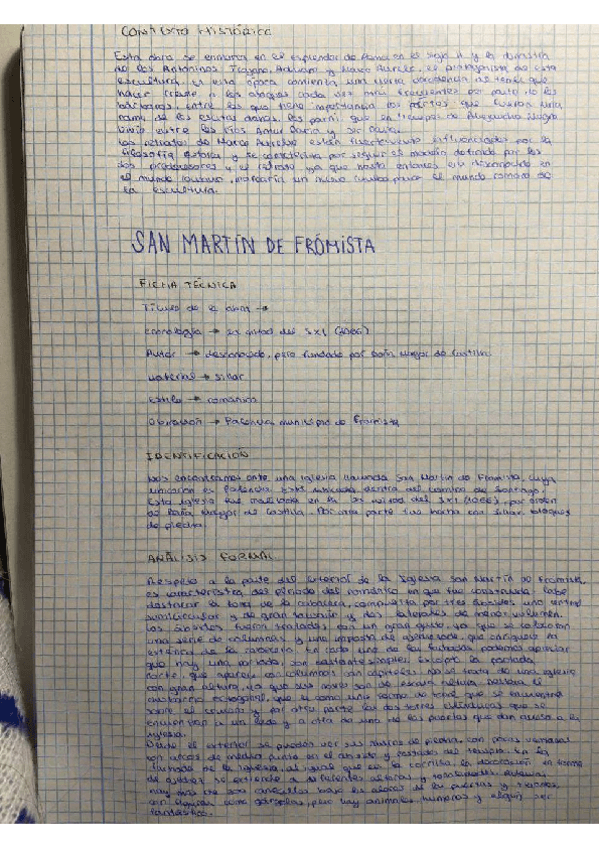 CONTEXTO HISTÓRICO
Esta obra se enmarca en el esplendor de Roma en el siglo II y la dinastía
de los Antoninos Trajano, Adriano y Marco Aurelio, el protagonista de esta
escultura, en esta época comienza una cierta decadencia al tener que
hacer frente a los ataques cada vez más frecuentes por parte de los
bárbaros, entre los que tiene importancia los partos que fueron una
rama de los escitas danas, los parni, que en tiempos de Alejandro Magno
vivió entre los ríos Amu Daria y Sir Daria.
Los retratos de Marco Aurelio están fuertemente influenciados por la
filosofía estoica y se caracteriza por seguir el modelo definido por los
dos predecesores y el retrato, ya que hasta entonces era desconocido en
el mundo romano, marcaría un nuevo rumbo para el mundo romano de
la escultura.
SAN MARTÍN DE FRÓMISTA
FICHA TÉCNICA
Título de la obra →
Cronología → 2ª mitad del S.XI (1066)
Autor → desconocido, pero fundado por Doña Mayor de Castilla
Material → sillar
Estilo → románico
Ubicación → Palencia municipio de Frómista
IDENTIFICACIÓN
Nos encontramos ante una iglesia llamada San Martín de Frómista, cuya
ubicación es Palencia, está ubicada dentro del camino de Santiago.
Esta iglesia fue realizada en la 2ª mitad del S.XI (1066), por orden
de Doña Mayor de Castilla. Por otra parte fue hecha con sillar bloques
de piedra.
ANÁLISIS FORMAL
Respeto a la parte del exterior de la Iglesia San Martín de Frómista,
es característica del período del románico en que fue construida. Cabe
destacar la zona de la cabecera, compuesta por tres ábsides uno central
semicircular y de gran tamaño y dos laterales de menor volumen.
Los ábsides fueron tratados con un gran gusto, ya que se colocaron
una serie de columnas y una imposta de ajedrezado, que enriquece la
estética de la cabecera. En cada una de las fachadas podemos apreciar
que hay una portada, son bastante simples, excepto la portada
norte, que aparece con columnas con capiteles. No se trata de una iglesia
con gran altura, ya que sus naves son de escasa altura. Destaca el
cimborrio octogonal, que es como una especie de torre que se encuentra
sobre el crucero y por otra parte las dos torres cilíndricas que se
encuentran a un lado y a otro de una de las puertas que dan acceso a la
iglesia.
Desde el exterior se pueden ver sus muros de piedra, con pocas ventanas
con arcos de medio punto en el ábside y costado del templo. En la
fachada de la iglesia, al igual que en la cornisa, la decoración en forma
de ajedrez se extiende a diferentes alturas y tonalidades, además
hay más de 300 canecillos bajo los aleros de las puertas y tejados,
con figuras como gárgolas, pero hay animales, humanos y algún ser
fantástico.